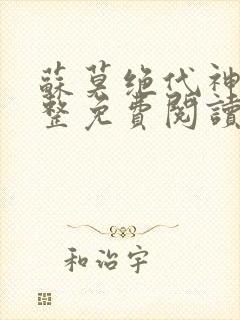 蘇莫绝代神
整免費閱讀
和治宇